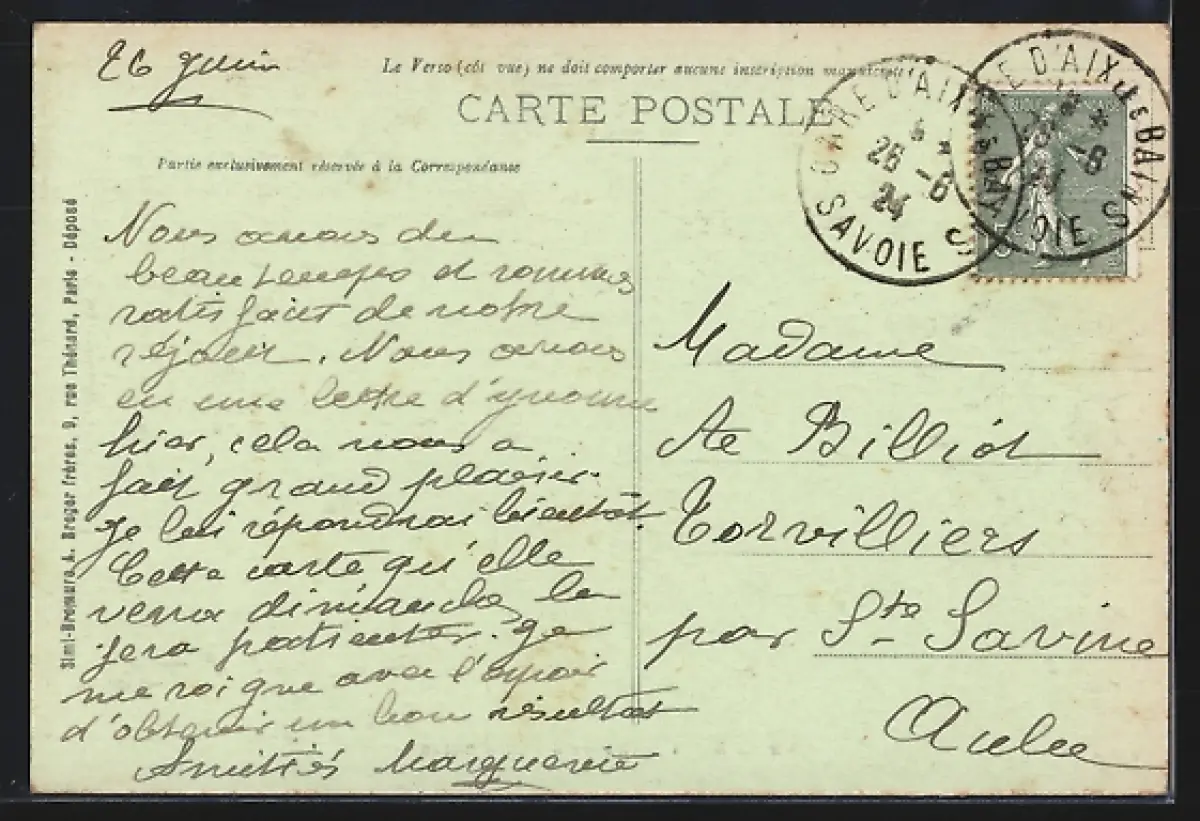 26 Juin
Le Verso (côt vue) ne doit comporter aucune inscription manuscrite
CARTE POSTALE
Partie exclusivement réservée à la Correspondance
GARE D'AIX LES BAINS
26 -6
24
SAVOIE
GARE D'AIX LES BAINS
-6
SAVOIE
Nous avons du
beau temps et sommes
satisfait de notre
séjour. Nous avons
eu une lettre d'Yvonne
hier, cela nous a
fait grand plaisir.
Je lui répondrai bientôt.
Cette carte qu'elle
verra dimanche la
fera patienter. Je
me soigne avec l'espoir
d'obtenir un bon résultat
Amitiés Marguerite
Madame
Ae Billiot
Torvilliers
par Ste Savine
Aube
Simi-Bromure A. Breger frères, 9, rue Thénard, Paris - Déposé